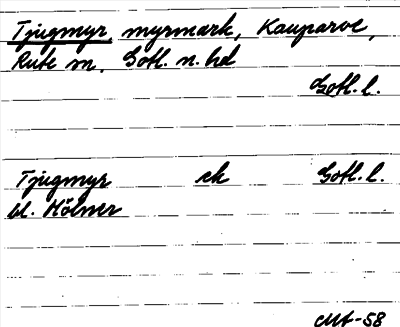 Tjugmyr, myrmark, Kauparve,
Rute sn, Gotl. n. hd
Gotl. l.
Tjugmyr ek Gotl. l.
bl. Hölner
CMt-58